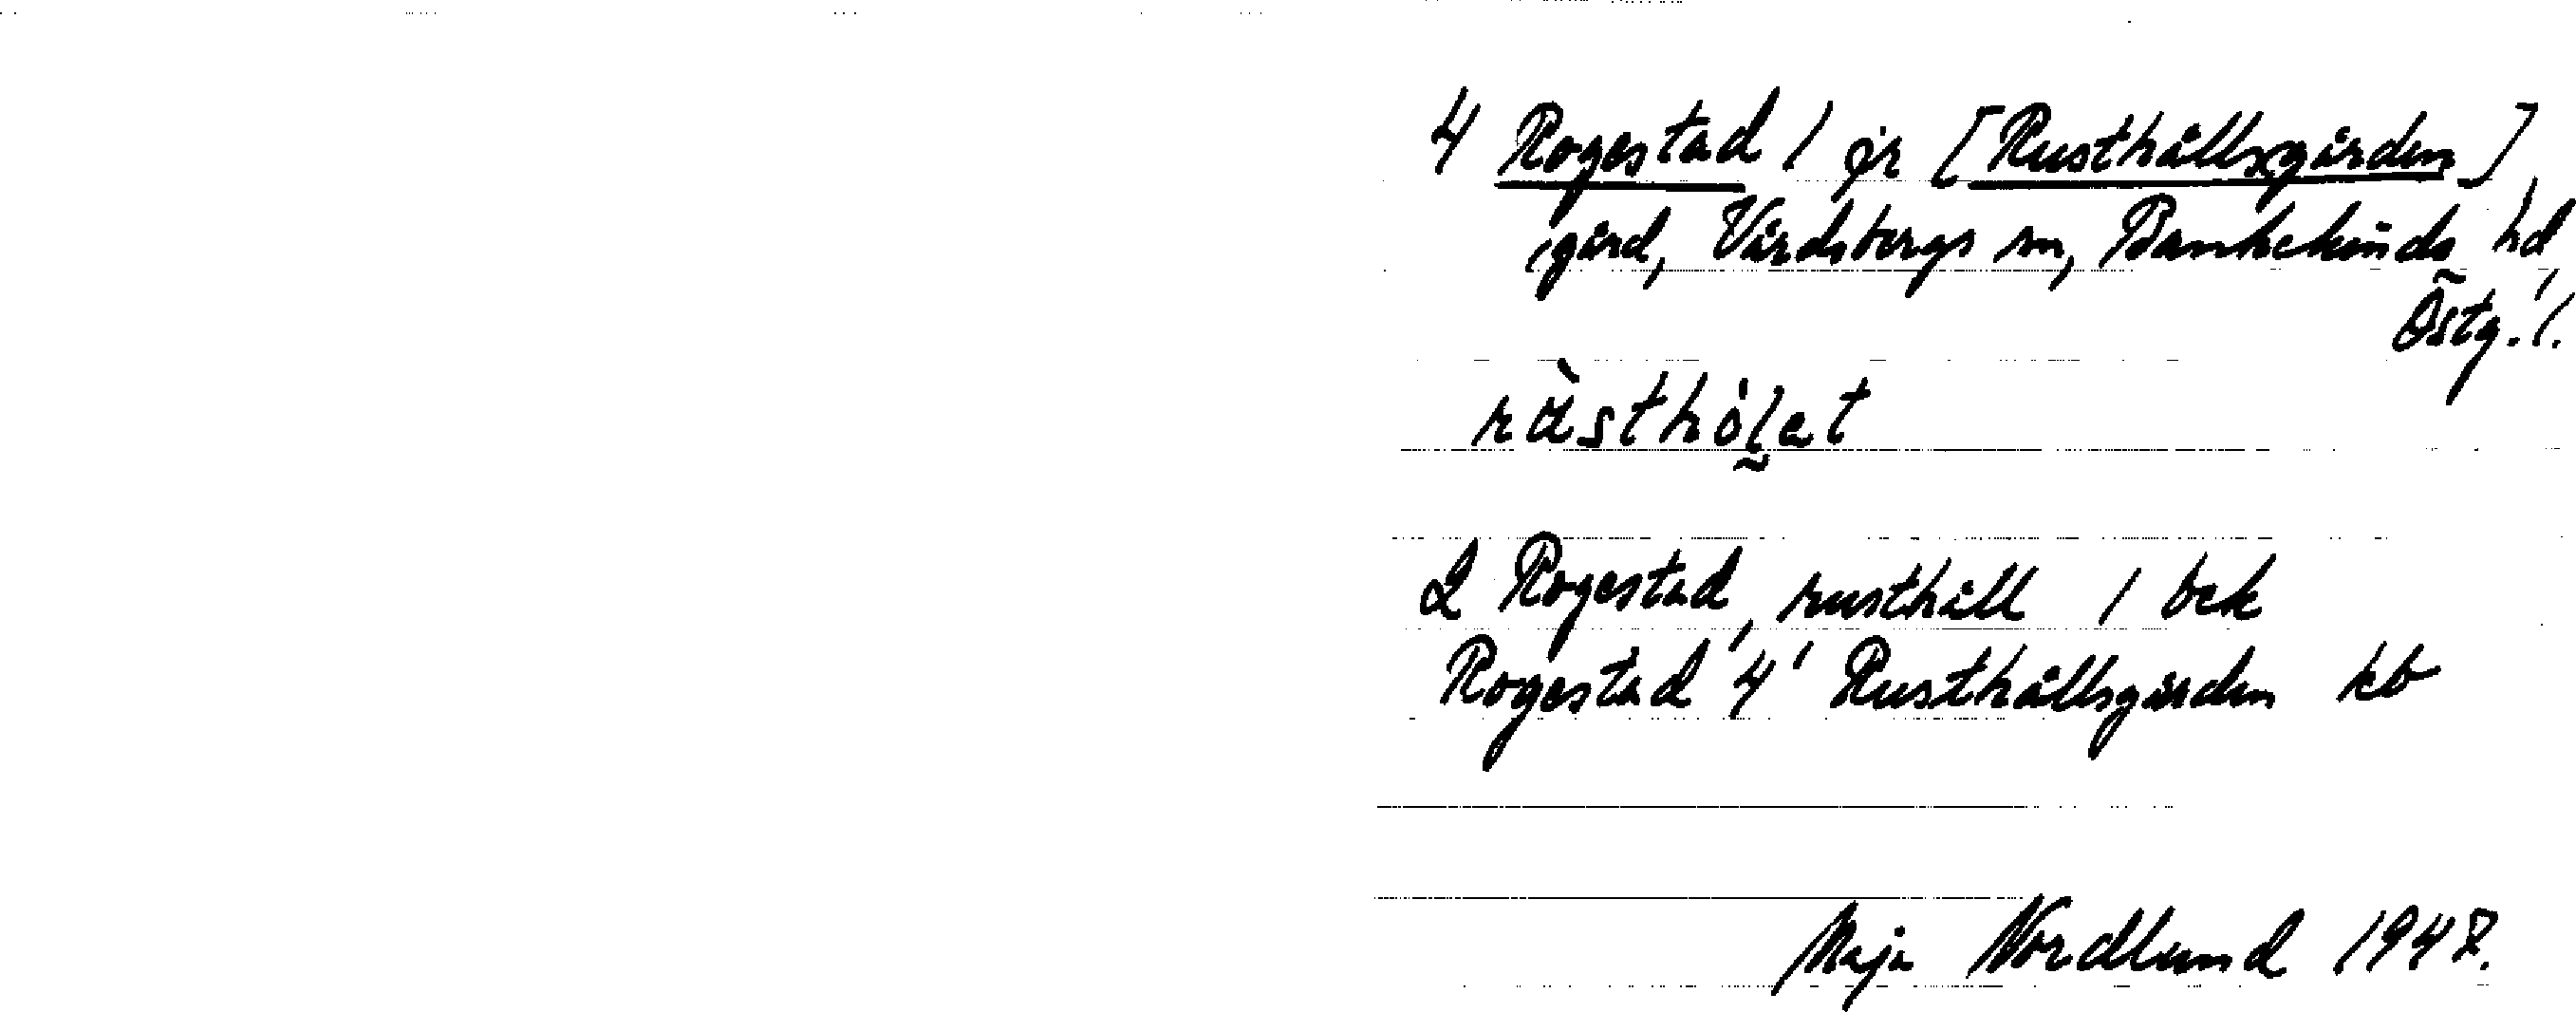 4 Rogestad / jr [Rusthållsgården]
gård, Vårdsbergs sn, Bankekinds hd,
Östg. l.
2 Rogestad, rusthåll 1 bek
Rogestad 4¹ Rusthållsgården kb
Maja Nordlund 1947.